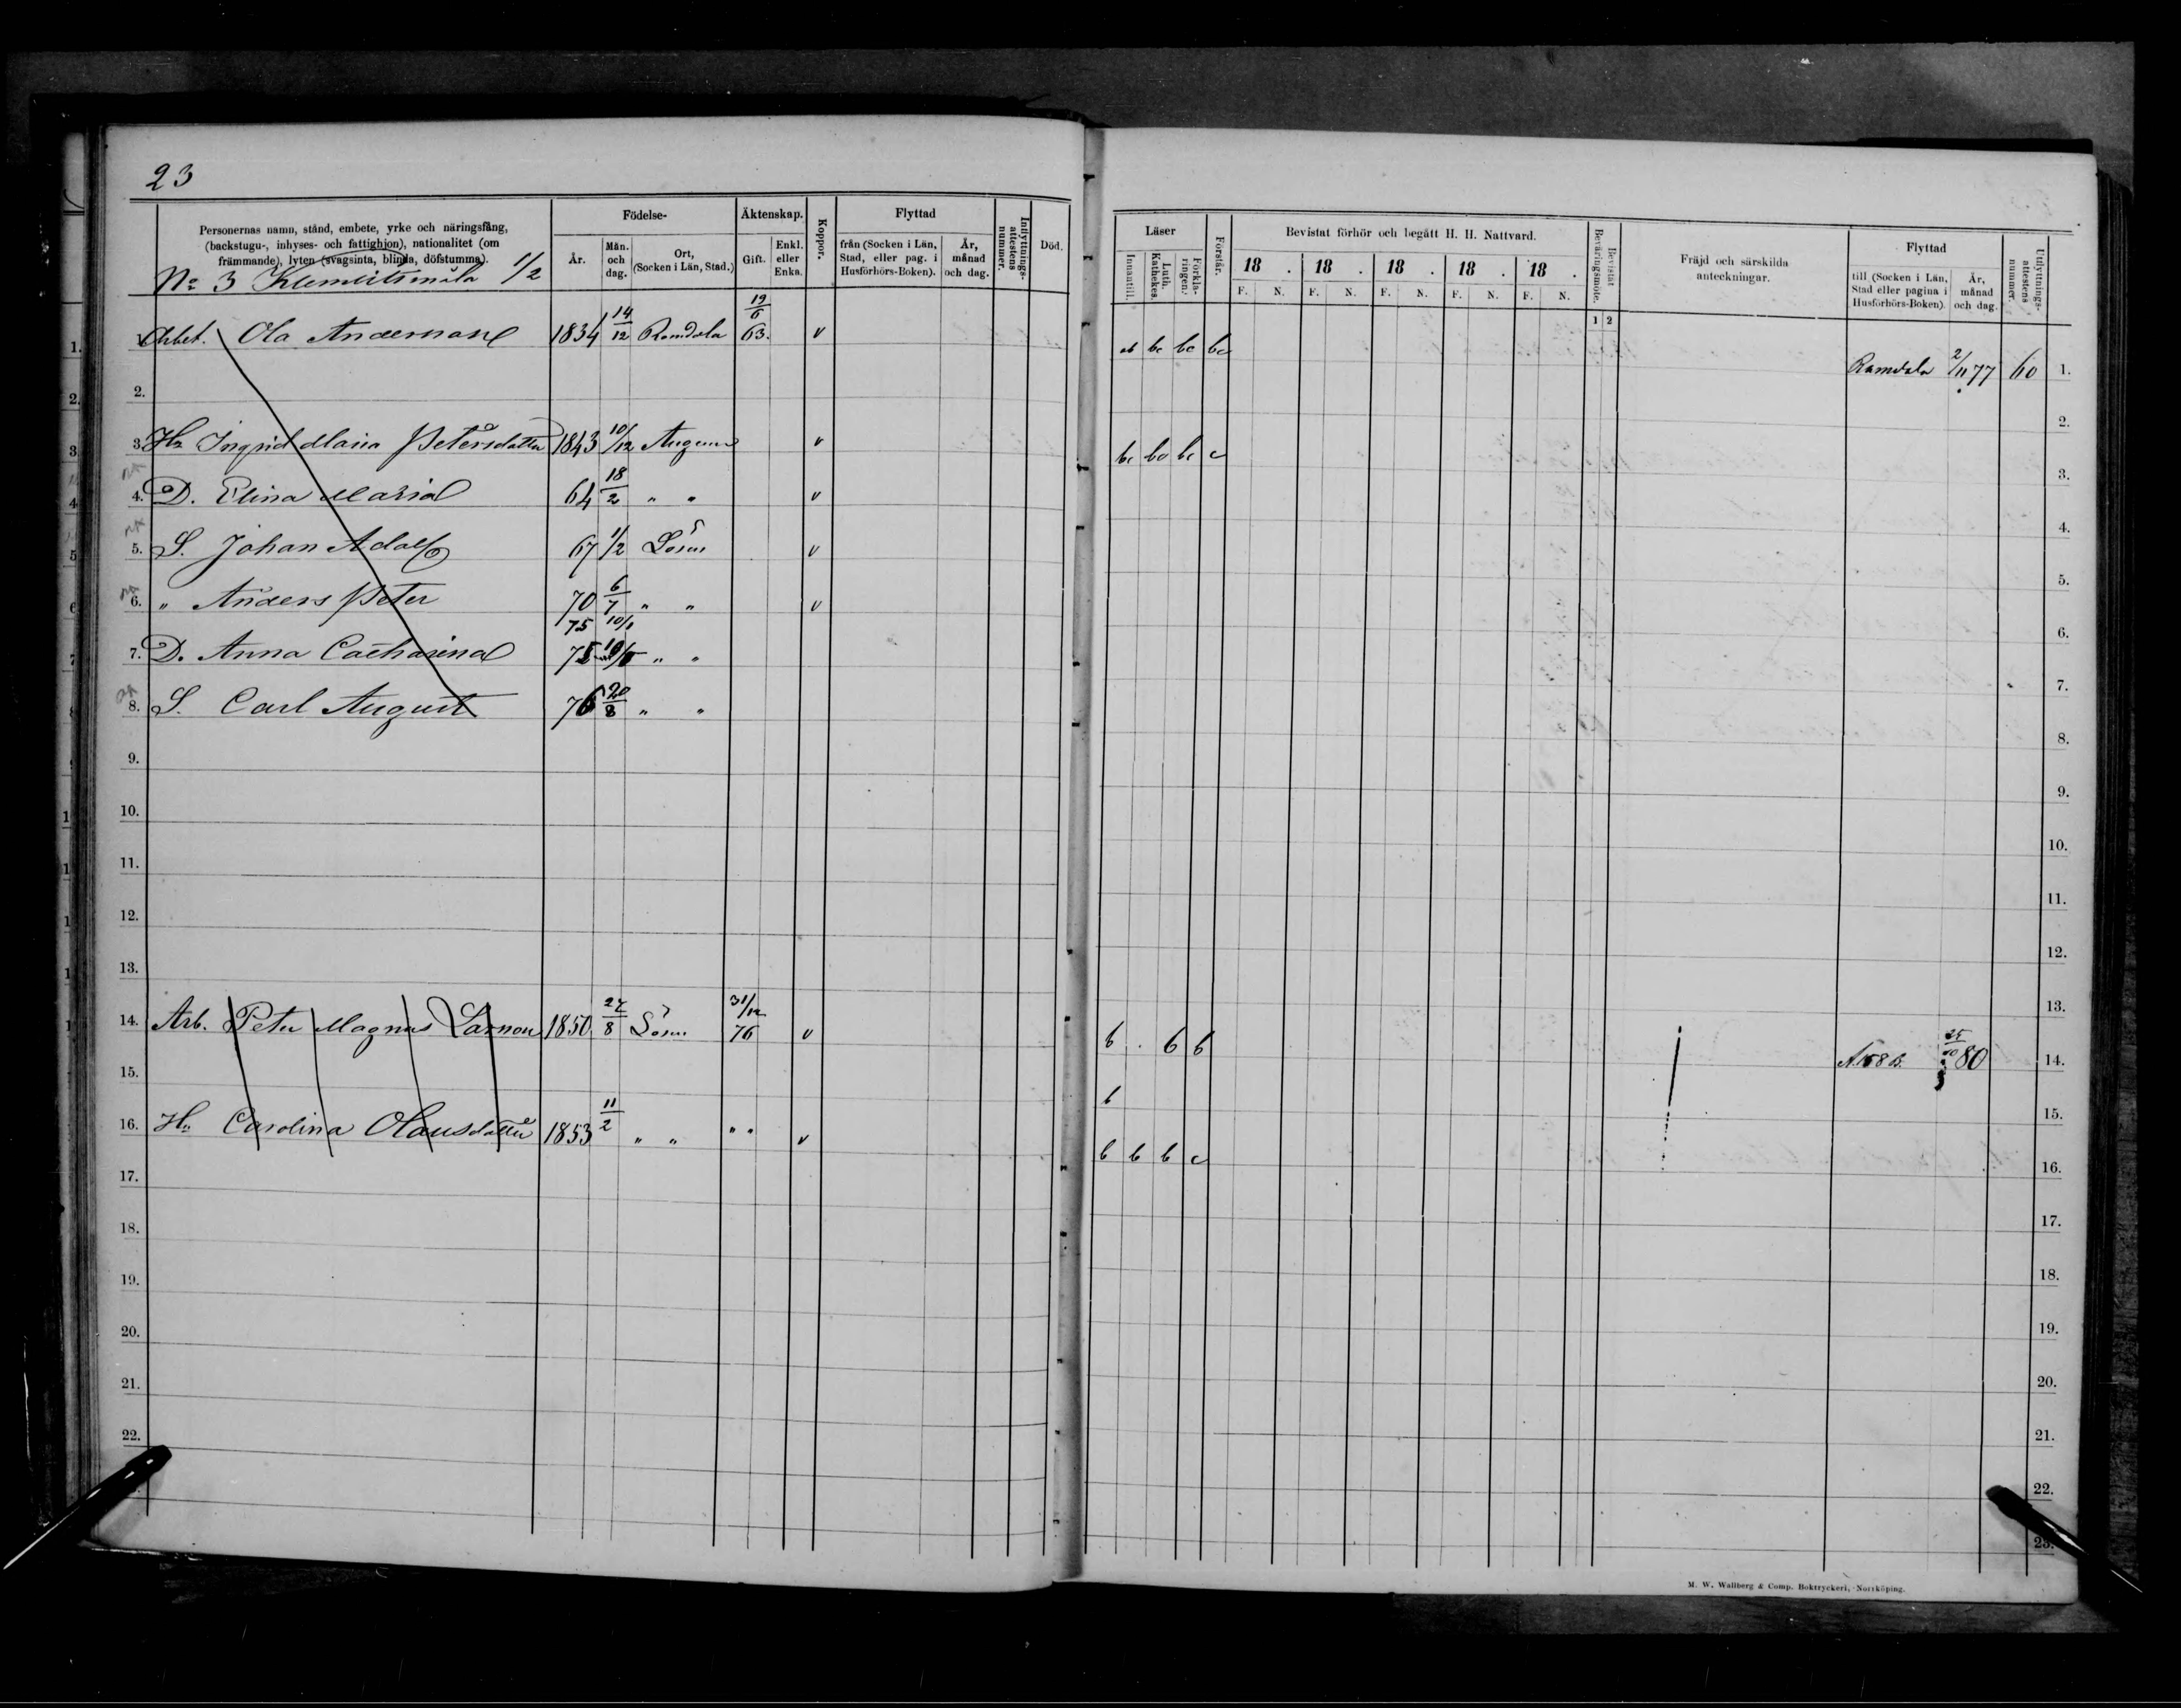 23
Personernas namn, stånd, embete, yrke och näringsfång, (backstugu-, inhyses- och fattighjon), nationalitet (om främmande), lyten (svagsinta, blinda, döfstumma).
Födelse-
År.
Mån. och dag.
Ort, (Socken i Län, Stad.)
Äktenskap.
Gift.
Enkl. eller Enka.
Koppor.
Flyttad
från (Socken i Län, Stad, eller pag. i Husförhörs-Boken).
År, månad och dag.
Inflyttnings-attestens nummer.
Död.
Läser
Innantill.
Luth. Kathekes.
Förkla-ringen.
Förstår.
Bevistat förhör och begått H. H. Nattvard.
18 . 18 . 18 . 18 . 18 .
F. N. F. N. F. N. F. N. F. N.
Bevistat Beväringsmöte.
1 2
Fräjd och särskilda anteckningar.
Flyttad
till (Socken i Län, Stad eller pagina i Husförhörs-Boken).
År, månad och dag.
Utflyttnings-attestens nummer.
No 3 Klemitsmåla 1/2
1. Arbet. Ola Andersson 1834 14/12 Ramdala 19/6 63. v ab bc bc bc Ramdala 2/11 77 60 1.
2. 2.
3. Hu Ingrid Maria Petersdotter 1843 10/12 Augum v bc bc bc c 3.
4. D. Elina Maria 64 18/2 " " v 4.
5. S. Johan Adolf 67 1/2 Lösen v 5.
6. " Anders Peter 70 6/7 " " v 6.
75 10/1
7. D. Anna Catharina 75 " " 7.
8. S. Carl August 76 20/8 " " 8.
9. 9.
10. 10.
11. 11.
12. 12.
13. 13.
14. Arb. Peter Magnus Larsson 1850 27/8 Lösen 31/12 76 v b . b b A. 168 B. 25/10 80 14.
15. b 15.
16. Hu Carolina Olausdotter 1853 11/2 " " " " v b b b c 16.
17. 17.
18. 18.
19. 19.
20. 20.
21. 21.
22. 22.
23.
M. W. Wallberg & Comp. Boktryckeri, Norrköping.